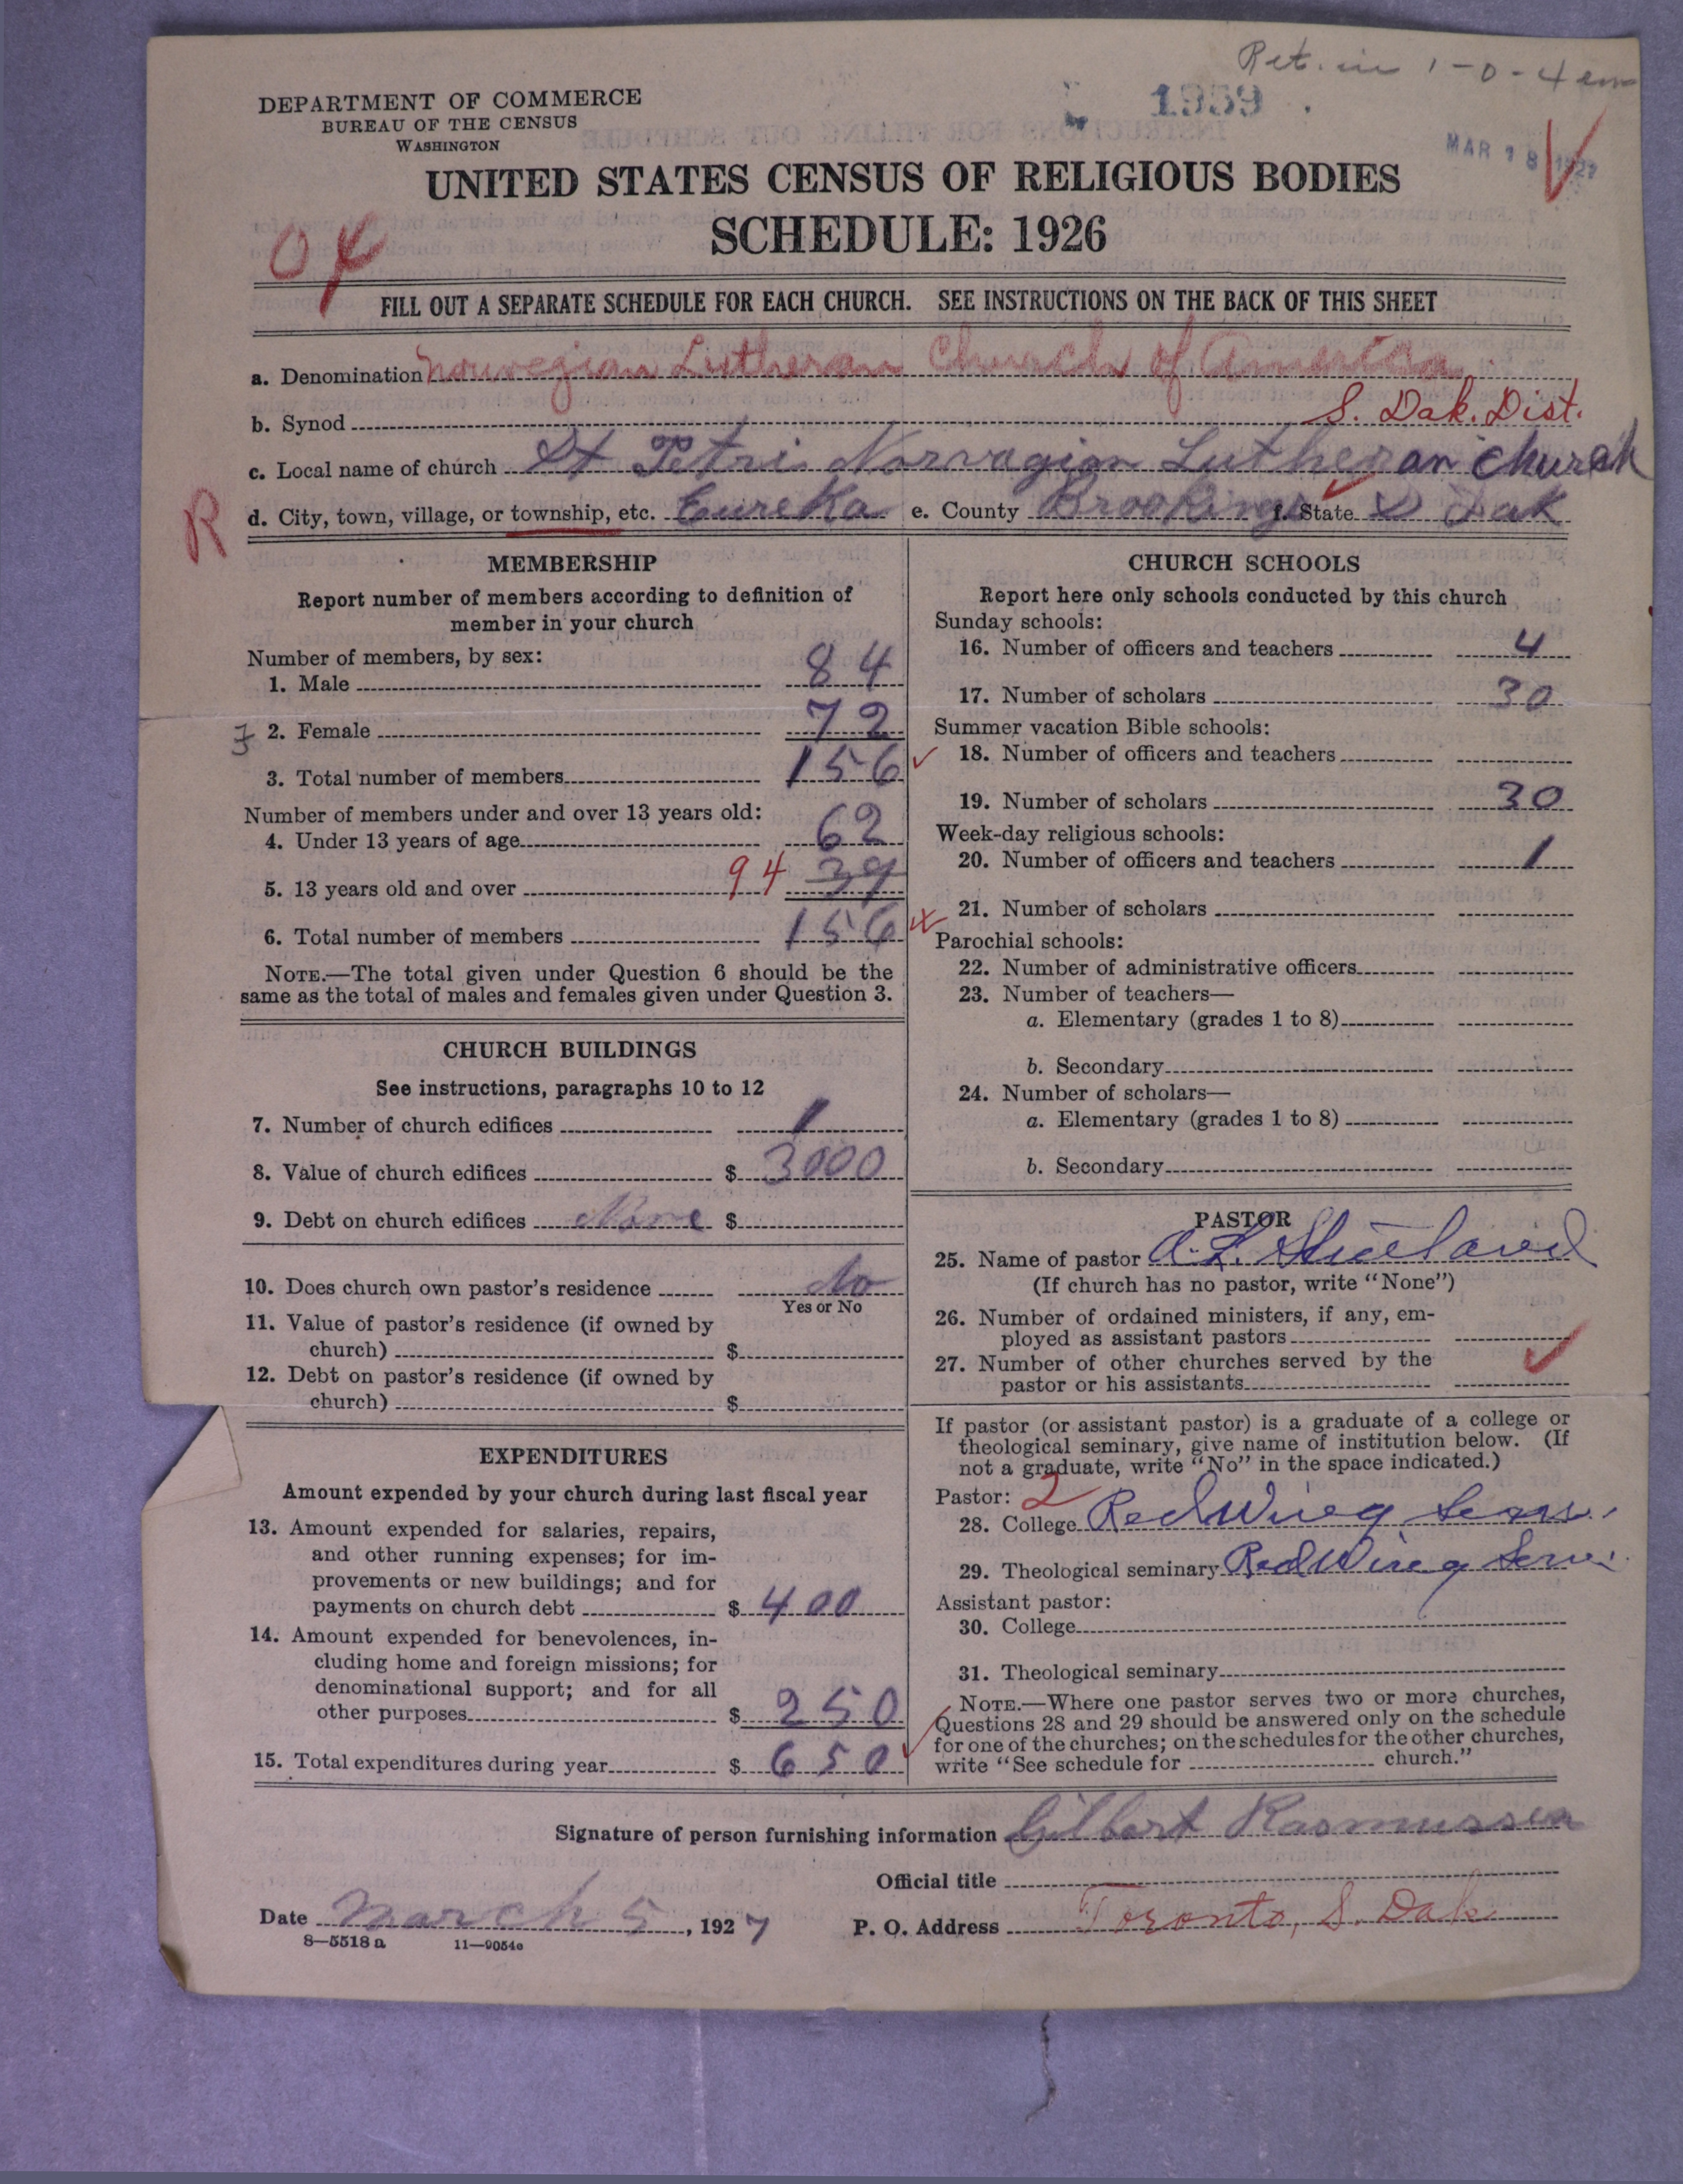 Ret. in 1-0-4
1959
MAR 18 1927
DEPARTMENT OF COMMERCE
BUREAU OF THE CENSUS
WASHINGTON
UNITED STATES CENSUS OF RELIGIOUS BODIES
SCHEDULE: 1926
FILL OUT A SEPARATE SCHEDULE FOR EACH CHURCH. SEE INSTRUCTIONS ON THE BACK OF THIS SHEET
a. Denomination Norwegian Lutheran Church of America
b. Synod S. Dak. Dist.
c. Local name of church St Petri Norvagian Lutheran church
R d. City, town, village, or township, etc. Eureka e. County Brookings f. State S Dak
MEMBERSHIP
Report number of members according to definition of
member in your church
Number of members, by sex:
1. Male 84
2. Female 72
3. Total number of members 156
Number of members under and over 13 years old:
4. Under 13 years of age 62
5. 13 years old and over 94 39
6. Total number of members 156
NOTE.—The total given under Question 6 should be the
same as the total of males and females given under Question 3.
CHURCH BUILDINGS
See instructions, paragraphs 10 to 12
7. Number of church edifices 1
8. Value of church edifices $ 3000
9. Debt on church edifices None $
10. Does church own pastor's residence No
Yes or No
11. Value of pastor's residence (if owned by
church) $
12. Debt on pastor's residence (if owned by
church) $
EXPENDITURES
Amount expended by your church during last fiscal year
13. Amount expended for salaries, repairs,
and other running expenses; for im-
provements or new buildings; and for
payments on church debt $ 400
14. Amount expended for benevolences, in-
cluding home and foreign missions; for
denominational support; and for all
other purposes $ 250
15. Total expenditures during year $ 650
CHURCH SCHOOLS
Report here only schools conducted by this church
Sunday schools:
16. Number of officers and teachers 4
17. Number of scholars 30
Summer vacation Bible schools:
18. Number of officers and teachers
19. Number of scholars 30
Week-day religious schools:
20. Number of officers and teachers 1
21. Number of scholars
Parochial schools:
22. Number of administrative officers
23. Number of teachers—
a. Elementary (grades 1 to 8)
b. Secondary
24. Number of scholars—
a. Elementary (grades 1 to 8)
b. Secondary
PASTOR
25. Name of pastor A. L.
(If church has no pastor, write "None")
26. Number of ordained ministers, if any, em-
ployed as assistant pastors
27. Number of other churches served by the
pastor or his assistants
If pastor (or assistant pastor) is a graduate of a college or
theological seminary, give name of institution below. (If
not a graduate, write "No" in the space indicated.)
Pastor: 2
28. College Red Wing Sem.
29. Theological seminary Red Wing Sem.
Assistant pastor:
30. College
31. Theological seminary
NOTE.—Where one pastor serves two or more churches,
Questions 28 and 29 should be answered only on the schedule
for one of the churches; on the schedules for the other churches,
write "See schedule for church."
Signature of person furnishing information Gilbert Rasmussen
Official title
Date March 5, 1927 P. O. Address Toronto, S. Dak
8—5518a 11—9054e